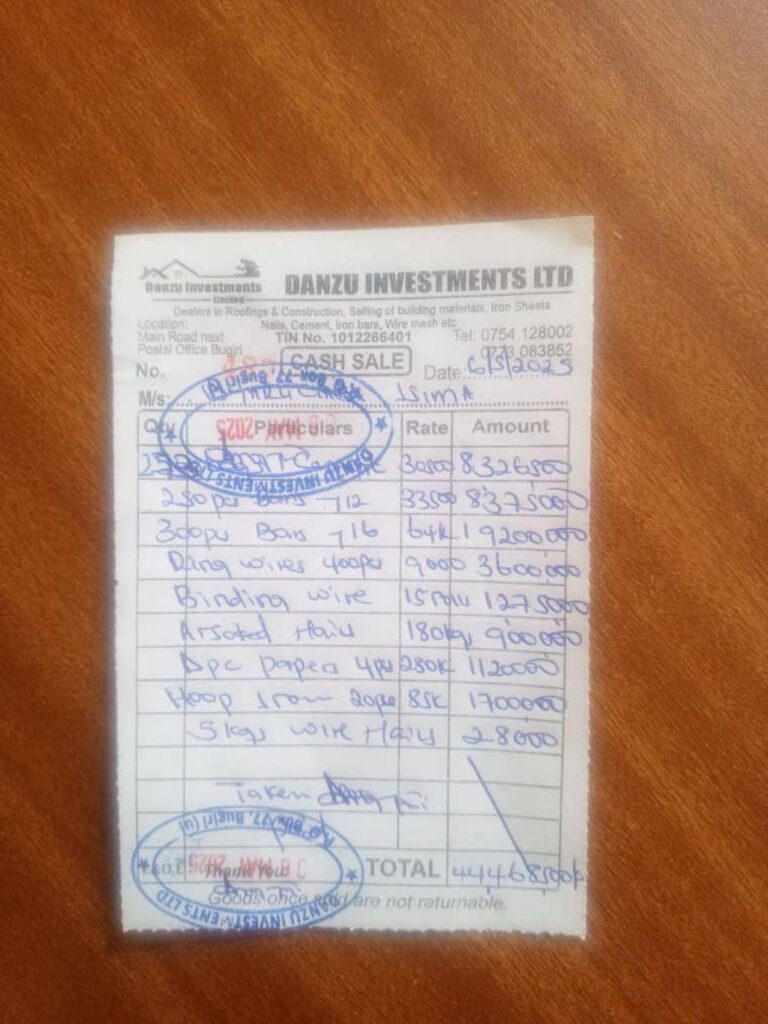 Danzu Investments
Limited
DANZU INVESTMENTS LTD
Dealers in Roofings & Construction, Selling of building materials, Iron Sheets
Nails, Cement, Iron bars, Wire mesh etc
Location:
Main Road next
Postal Office Bugiri
TIN No. 1012266401
Tel: 0754 128002
0773 083852
No.
CASH SALE
Date: 6/5/2025
M/s:
Qty Particulars Rate Amount
30500 8326500
250pcs Bars Y12 33500 8375000
300pcs Bars Y16 64k 19200000
Ring wires 400pcs 9000 3600000
Binding wire 15rolls 1275000
Nails 180kgs 900000
Dpc papers 4pcs 280k 1120000
Hoop Iron 20pcs 85k 1700000
5kgs wire Nails 28000
Taken
E&O.E Thank You
TOTAL 44,468,500/
Goods once sold are not returnable.
P.O. Box 77, Bugiri (U)
MAY 2025
DANZU INVESTMENTS LTD
P.O. Box 77, Bugiri (U)
MAY 2025
DANZU INVESTMENTS LTD